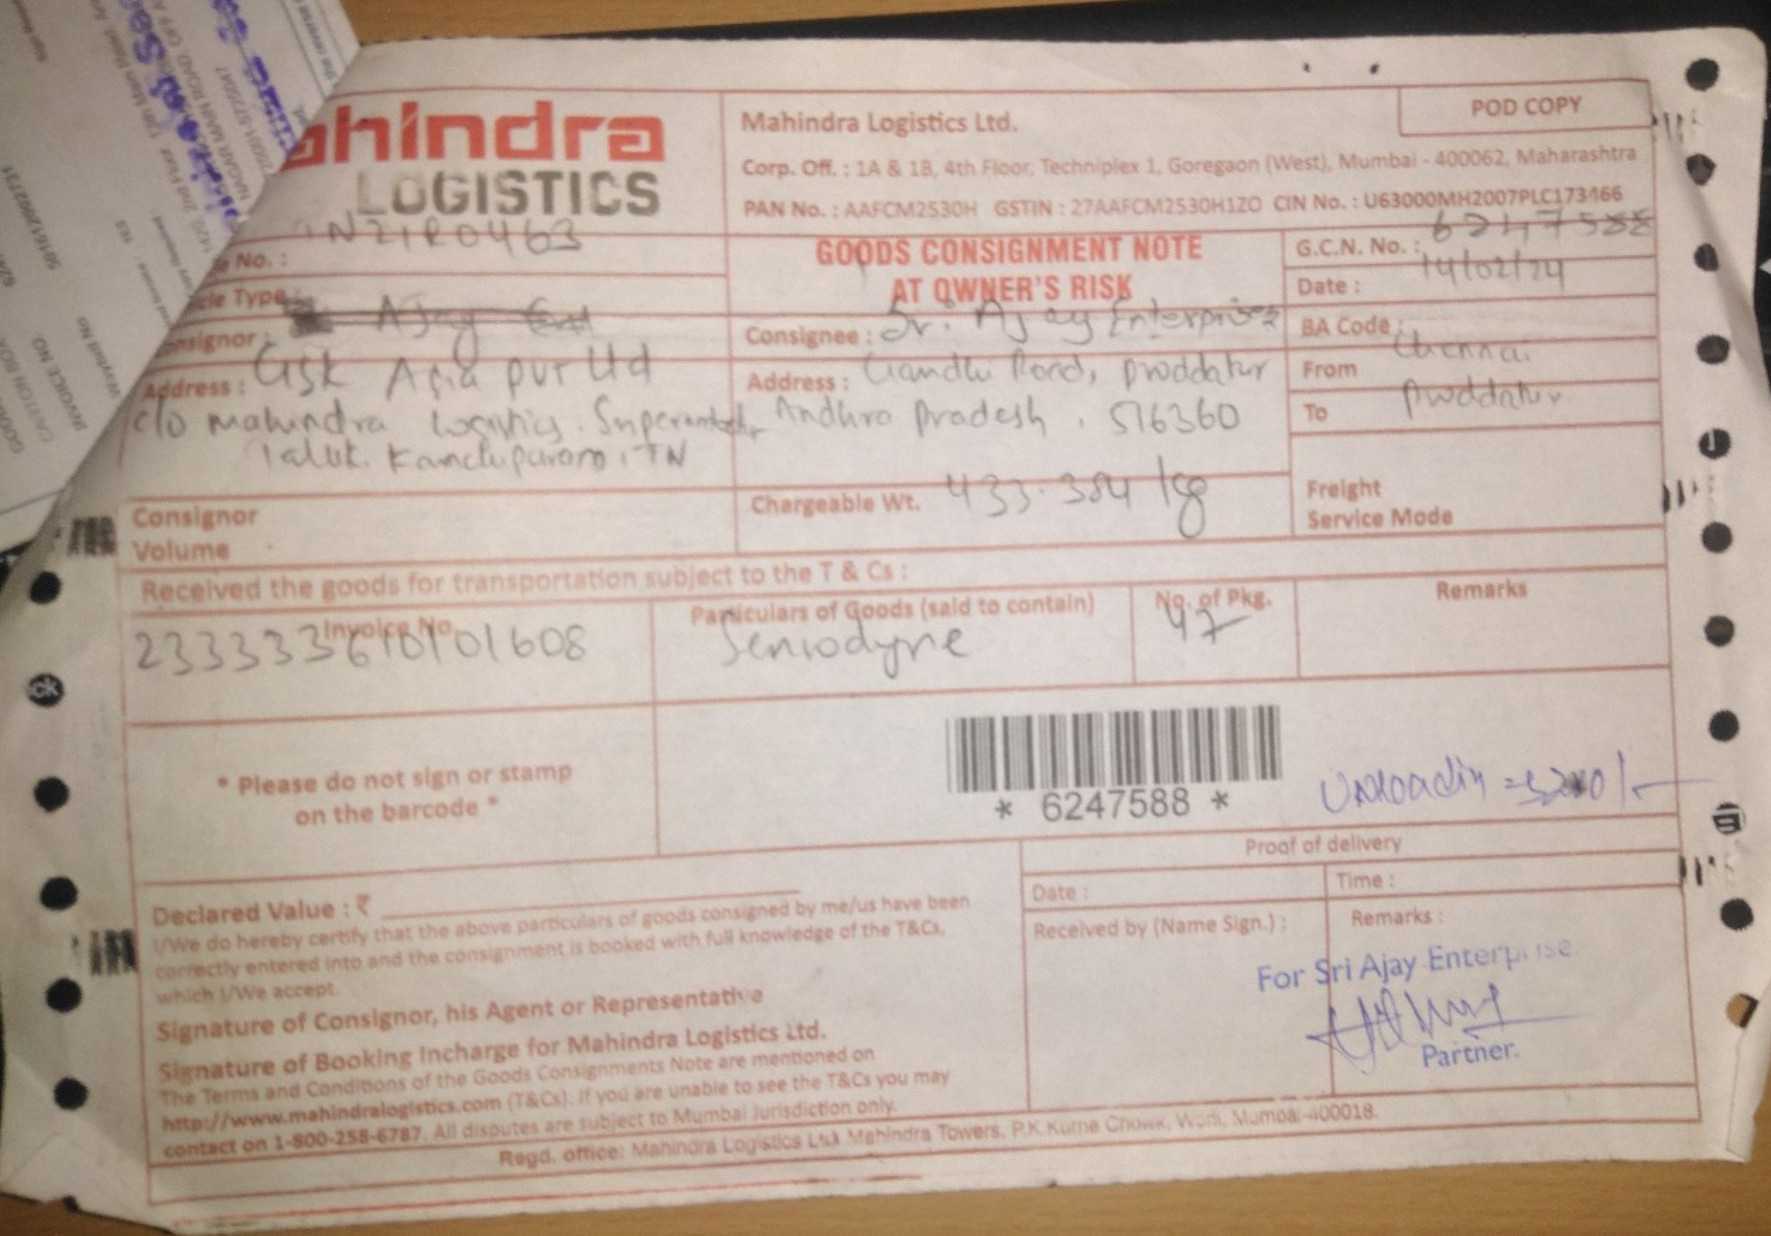 POD COPY
hindra
LOGISTICS
Mahindra Logistics Ltd.
Corp. Off. : 1A & 1B, 4th Floor, Techniplex 1, Goregaon (West), Mumbai - 400062, Maharashtra
PAN No. : AAFCM2530H GSTIN : 27AAFCM2530H1ZO CIN No. : U63000MH2007PLC173466
No. :
GOODS CONSIGNMENT NOTE
AT OWNER'S RISK
G.C.N. No. : 6247588
Date : 14/02/24
Type
Consignee : Sri Ajay Enterprises
BA Code :
Address : GSK Asia pvt Ltd
c/o Mahindra Logistics
Kanchipuram, TN
Address : Gandhi Road, proddatur
Andhra Pradesh. 516360
From Chennai
To proddatur
Consignor
Volume
Chargeable Wt. 433.384 kg
Freight
Service Mode
Received the goods for transportation subject to the T & Cs :
Invoice No.
Particulars of Goods (said to contain)
No. of Pkg.
Remarks
Sensodyne
47
* Please do not sign or stamp
on the barcode *
* 6247588 *
Proof of delivery
Date :
Time :
Received by (Name Sign.) :
Remarks :
For Sri Ajay Enterprise
Partner.
Declared Value : ₹
I/We do hereby certify that the above particulars of goods consigned by me/us have been
correctly entered into and the consignment is booked with full knowledge of the T&Cs,
which I/We accept.
Signature of Consignor, his Agent or Representative
Signature of Booking Incharge for Mahindra Logistics Ltd.
The Terms and Conditions of the Goods Consignments Note are mentioned on
http://www.mahindralogistics.com (T&Cs). If you are unable to see the T&Cs you may
contact on 1-800-258-6787. All disputes are subject to Mumbai Jurisdiction only.
Regd. office: Mahindra Logistics Ltd Mahindra Towers, P.K Kurne Chowk, Worli, Mumbai-400018.